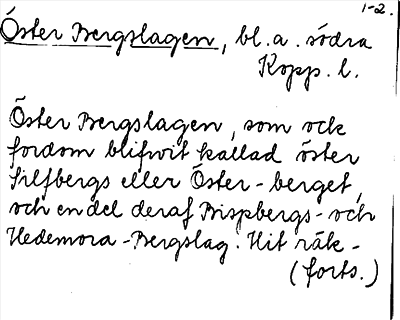 1-2.
Öster Bergslagen, bl. a. södra
Kopp. l.
Öster Bergslagen, som ock
fordom blifwit kallad öster
Silfbergs eller Öster-berget,
och en del deraf Bispbergs- och
Hedemora-Bergslag. Hit räk-
(forts.)